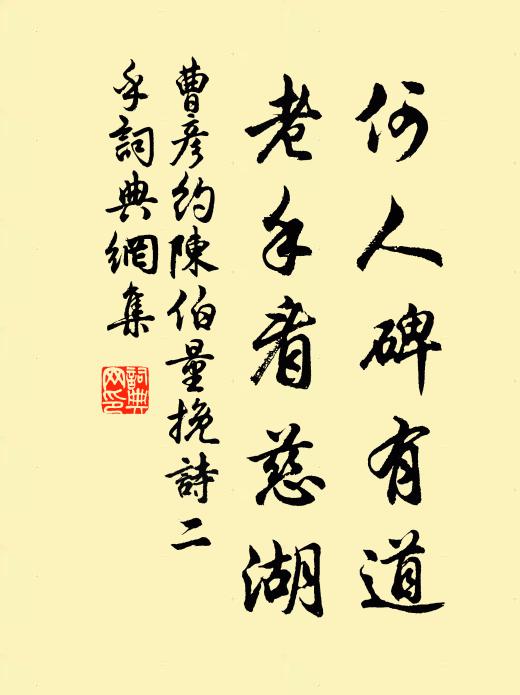 何人碑有道
老手看慈湖
曹彥約陳伯量挽詩二
手詞典網集
詞典網印